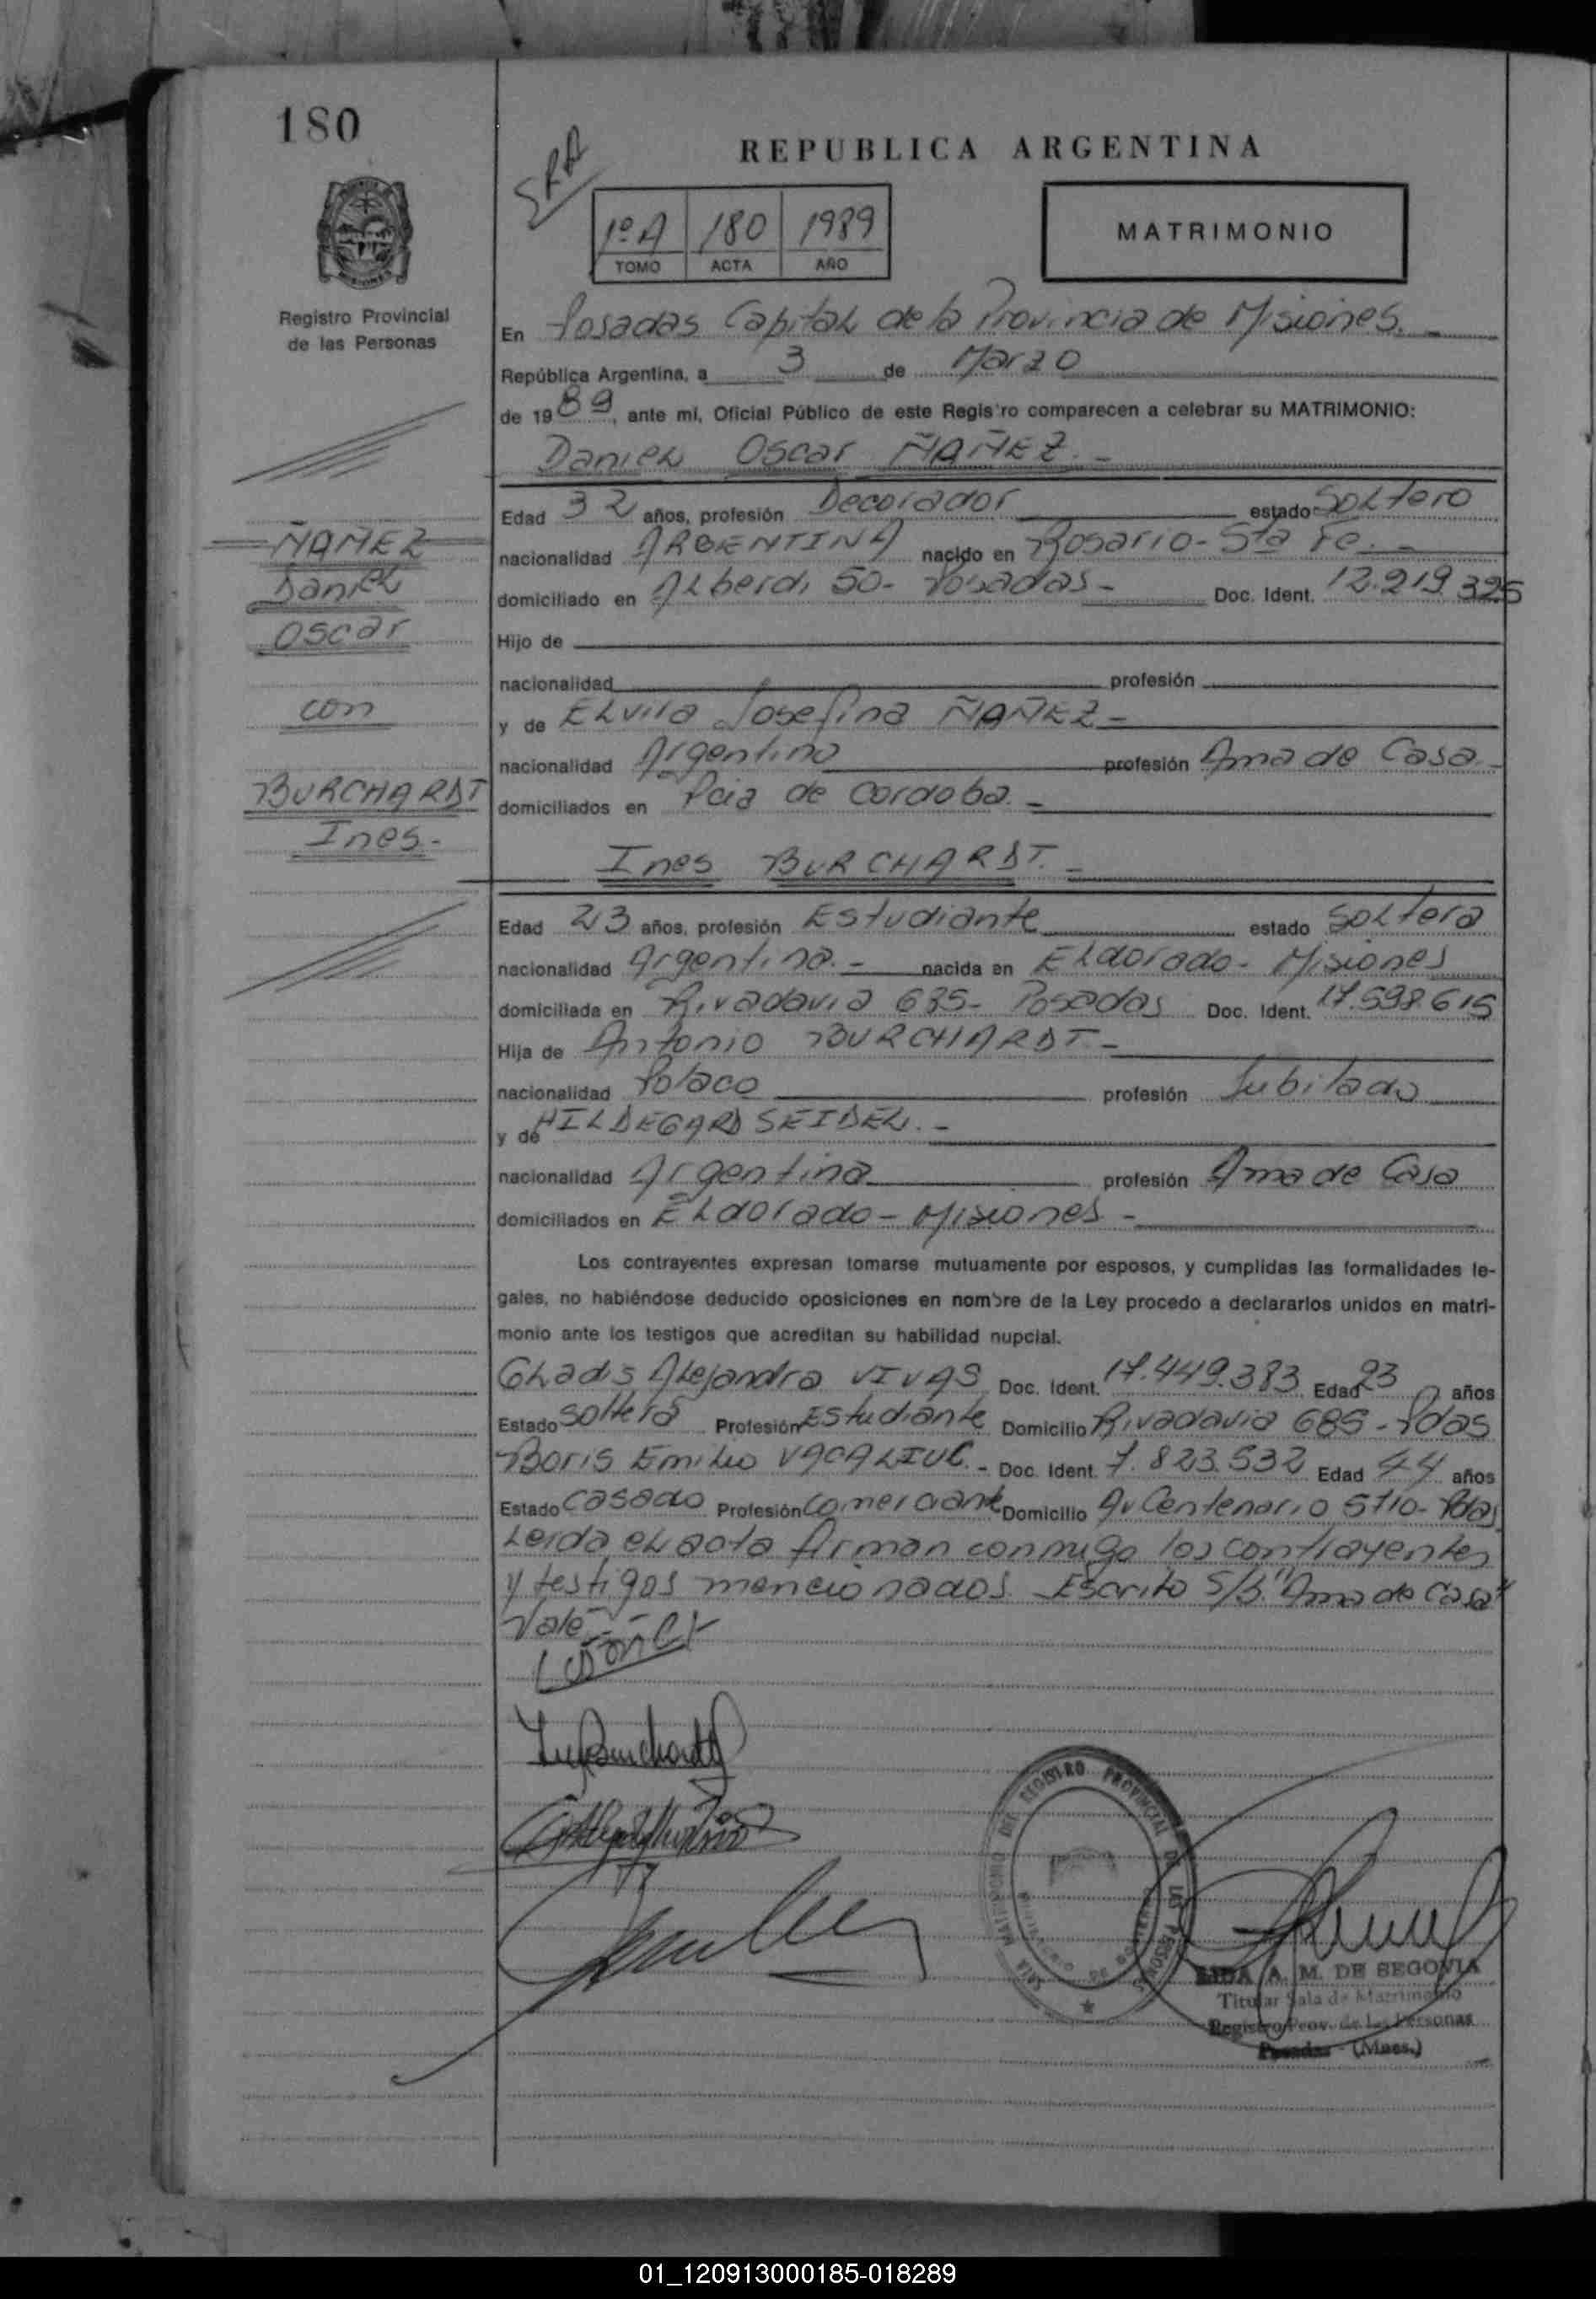 180
SRA
REPUBLICA ARGENTINA
1º A 180 1989
TOMO ACTA AÑO
MATRIMONIO
Registro Provincial
de las Personas
En Posadas Capital de la Provincia de Misiones.-
República Argentina, a 3 de Marzo
de 1989, ante mi, Oficial Público de este Registro comparecen a celebrar su MATRIMONIO:
Daniel Oscar ÑAÑEZ.-
Edad 32 años, profesión Decorador estado Soltero
nacionalidad ARGENTINA nacido en Rosario-Sta Fe.-
domiciliado en Alberdi 50- Posadas- Doc. Ident. 12.219.325
Hijo de
nacionalidad profesión
y de Elvira Josefina ÑAÑEZ-
nacionalidad Argentina profesión Ama de Casa-
domiciliados en Pcia de Cordoba.-
ÑAÑEZ
Daniel
Oscar
con
BURCHARDT
Ines.-
Ines BURCHARDT.-
Edad 23 años, profesión Estudiante estado Soltera
nacionalidad Argentina.- nacida en Eldorado- Misiones
domiciliada en Rivadavia 685- Posadas Doc. Ident. 17.598.615
Hija de Antonio BURCHARDT-
nacionalidad Polaco profesión Jubilado
y de HILDEGARD SEIDEL.-
nacionalidad Argentina profesión Ama de Casa
domiciliados en Eldorado-Misiones-
Los contrayentes expresan tomarse mutuamente por esposos, y cumplidas las formalidades le-
gales, no habiéndose deducido oposiciones en nombre de la Ley procedo a declararlos unidos en matri-
monio ante los testigos que acreditan su habilidad nupcial.
Gladis Alejandra VIVAS Doc. Ident. 17.449.383 Edad 23 años
Estado Soltera Profesión Estudiante Domicilio Rivadavia 685-Pdas
Boris Emilio VACALIUC.- Doc. Ident. 7.823.532 Edad 44 años
Estado Casado Profesión Comerciante Domicilio Av Centenario 5710-Pdas
Leida el acta firman conmigo los contrayentes
y testigos mencionados. Escrito S/B. "Ama de Casa"
Vale-
SALA MATRIMONIO DEL REGISTRO PROVINCIAL DE LAS PERSONAS
A. M. DE SEGOVIA
Titular Sala de Matrimonio
Registro Prov. de Las Personas
Posadas - (Mnes.)
01_120913000185-018289